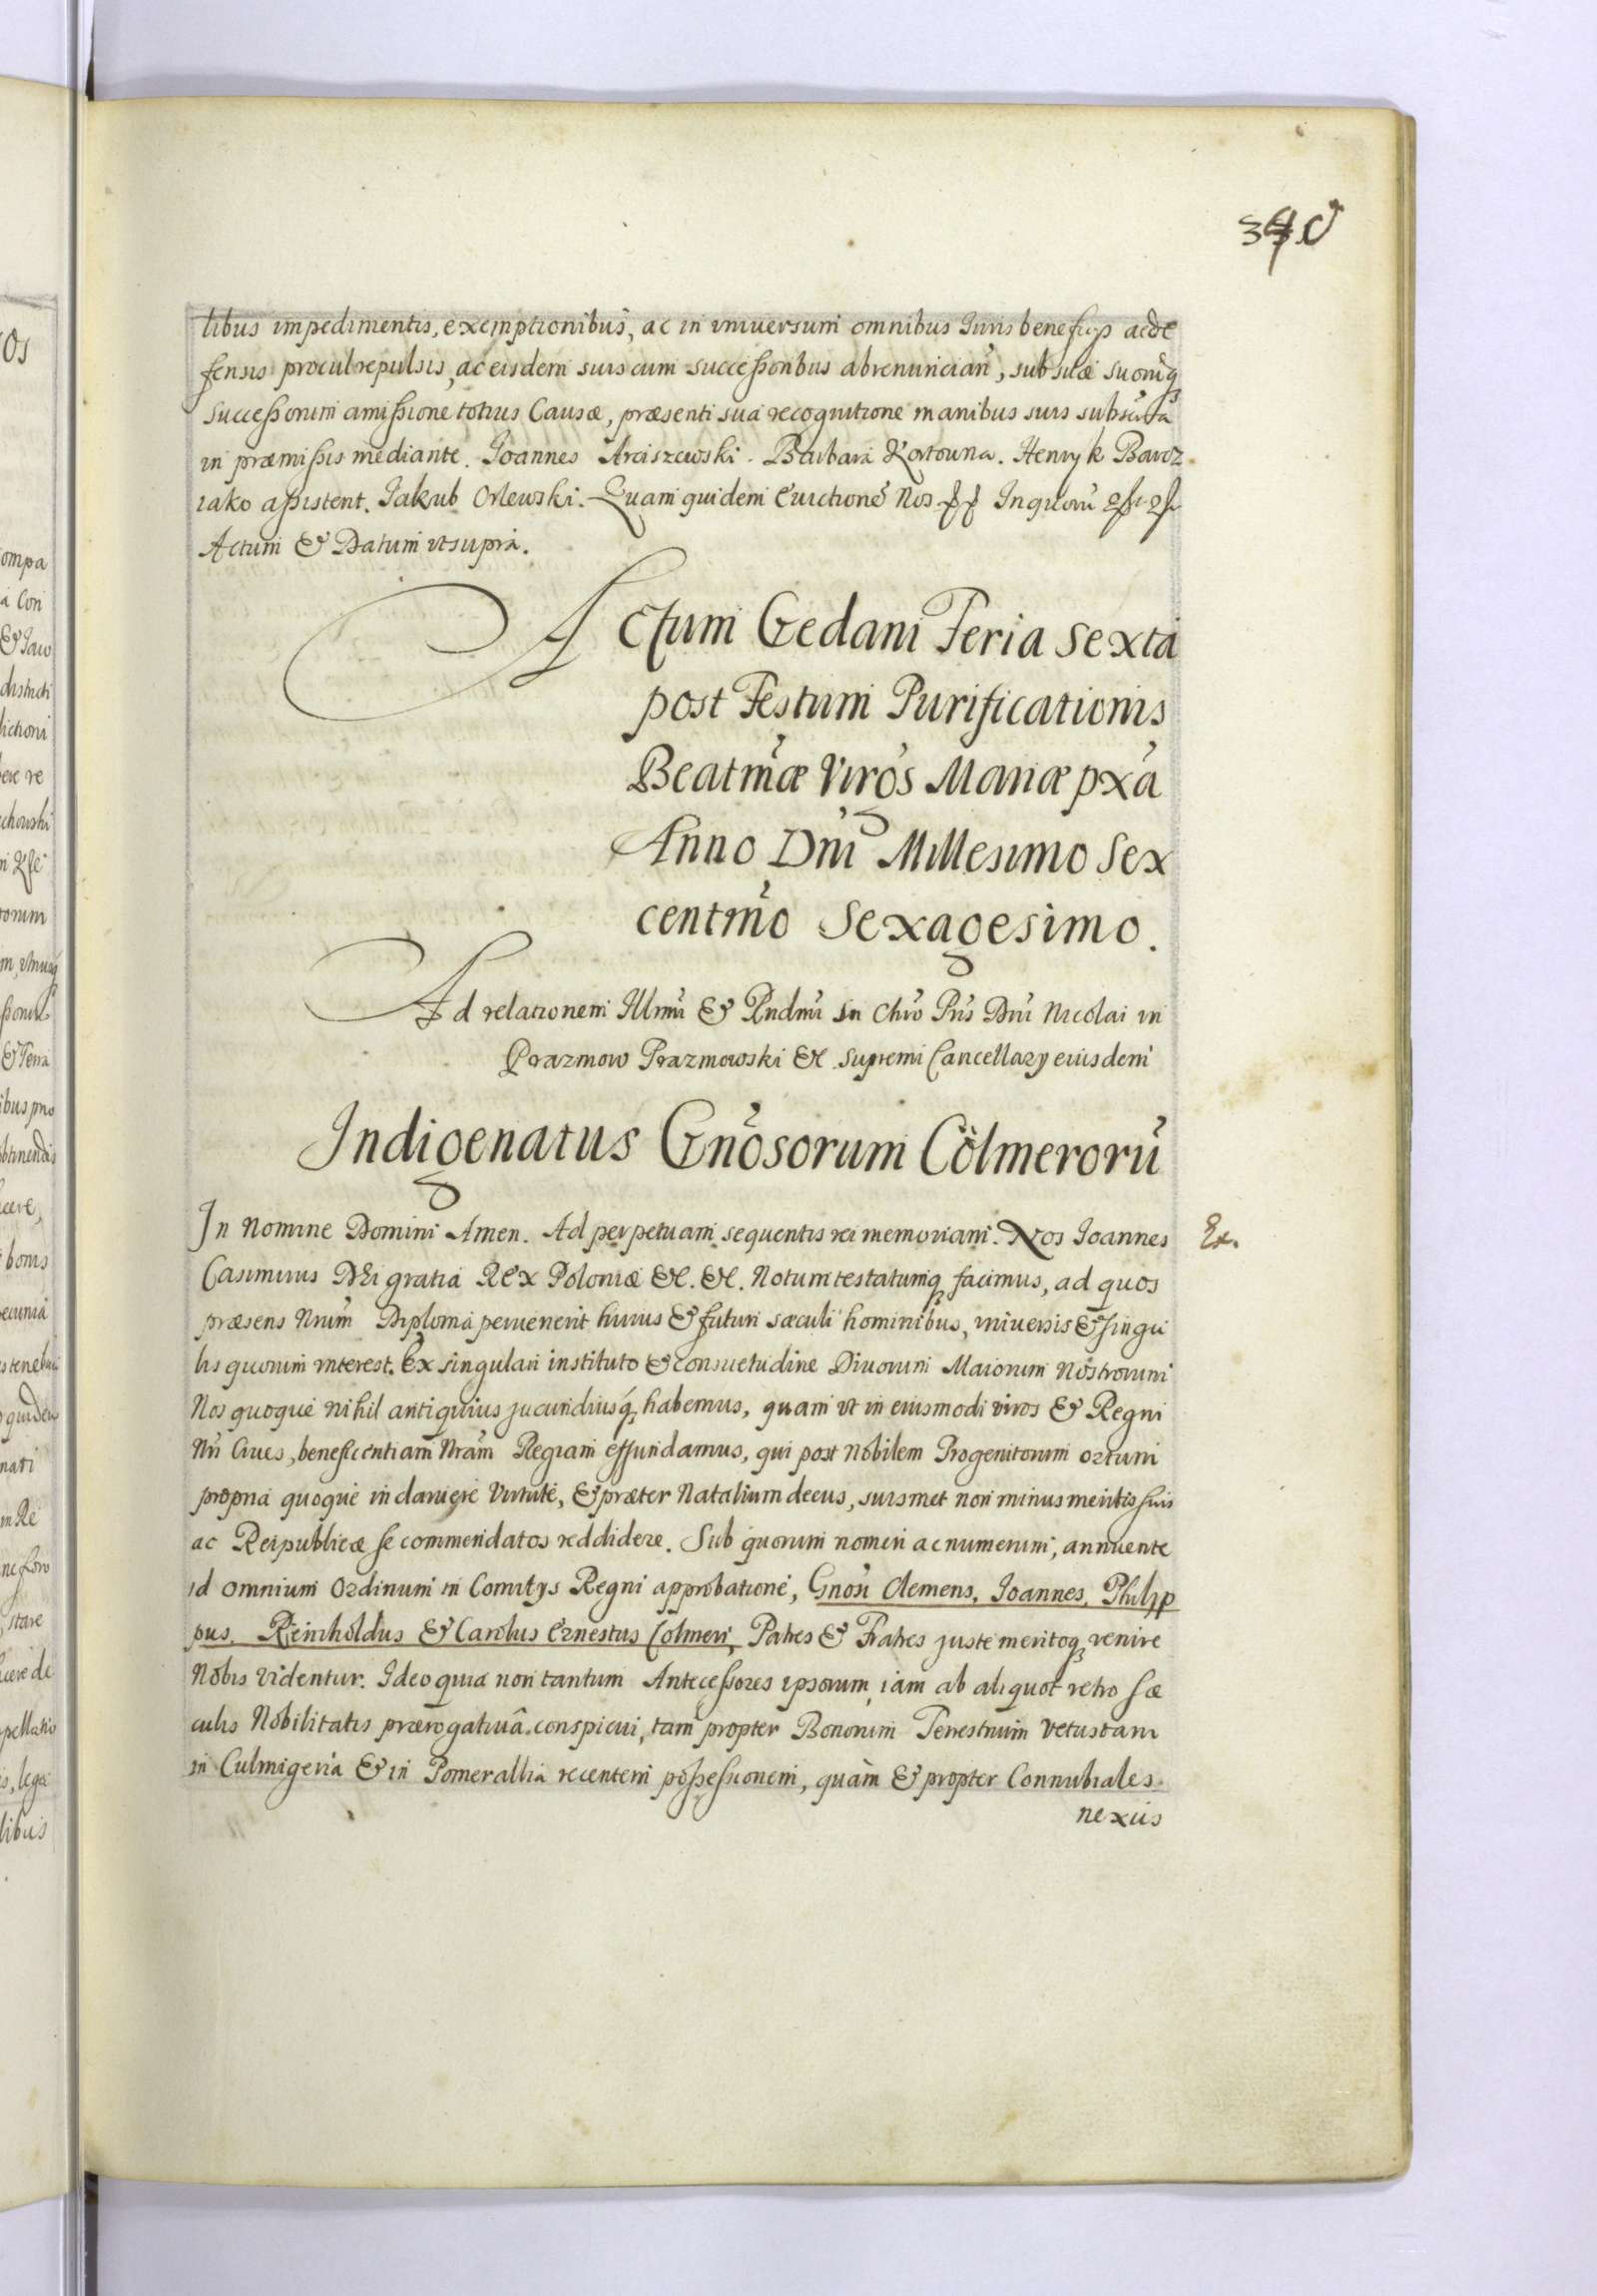 libus impedimentis, exemptionibus, ac in universum omnibus Iuris beneficijs ac de
fensis procul repulsis, ac eisdem suis cum successoribus abrenuncian̄, sub suæ suorūq̨
successorum amissione totius Causæ, præsenti sua recognitione manibus suis subscr̄ta
in præmissis mediante. Joannes Arciszewski. Barbara Kortowna. Henryk Barcz
iako assistent. Jakub Orlewski. Quam quidem Euictionē Nos In quorū
Actum & Datum ut supra.
Actum Gedani Feria Sexta
post Festum Purificationis
Beatm̄æ Virg̅s Mariæ px̅a
Anno Dn̄i Millesimo Sex
centm̄o Sexagesimo.
Ad relationem Illmī & Rndmī in Chr̄o Pr̄is Dn̄i Nicolai in
Prazmow Prazmowski &c supremi Cancellarij eiusdem
Indigenatus Gn̄osorum Cölmerorū
In Nomine Domini Amen. Ad perpetuam sequentis rei memoriam. Nos Joannes
Ex.
Casimirus DEi gratia REx Poloniæ &c. &c. Notum testatumq̨ facimus, ad quos
præsens Nrūm Diploma peruenerit huius & futuri sæculi hominibus, universis & singu
lis quorum interest. Ex singulari instituto & consuetudine Divorum Maiorum Nostrorum
Nos quoque nihil antiquius jucundiusq̨ habemus, quam ut in eiusmodi viros & Regni
Nr̄i Cives, beneficentiam Nrām Regiam effundamus, qui post Nobilem Progenitorum ortum
propria quoque inclaruere Virtute, & præter Natalium decus, suismet non minus meritis suis
ac Reipublicæ se commendatos reddidere. Sub quorum nomen ac numerum, annuente
id omnium Ordinum in Comitijs Regni approbatione, Gnosi Clemens, Joannes, Philip
pus, Reinholdus & Carolus Ernestus Colmeri, Patres & Fratres juste meritoq̨ venire
Nobis videntur. Ideo quia non tantum Antecessores ipsorum, iam ab aliquot retro sæ
culis Nobilitatis prærogativâ conspicui, tam propter Bonorum Terrestrium vetustam
in Culmigeria & in Pomerallia recentem possessionem, quàm & propter Connubiales
nexus